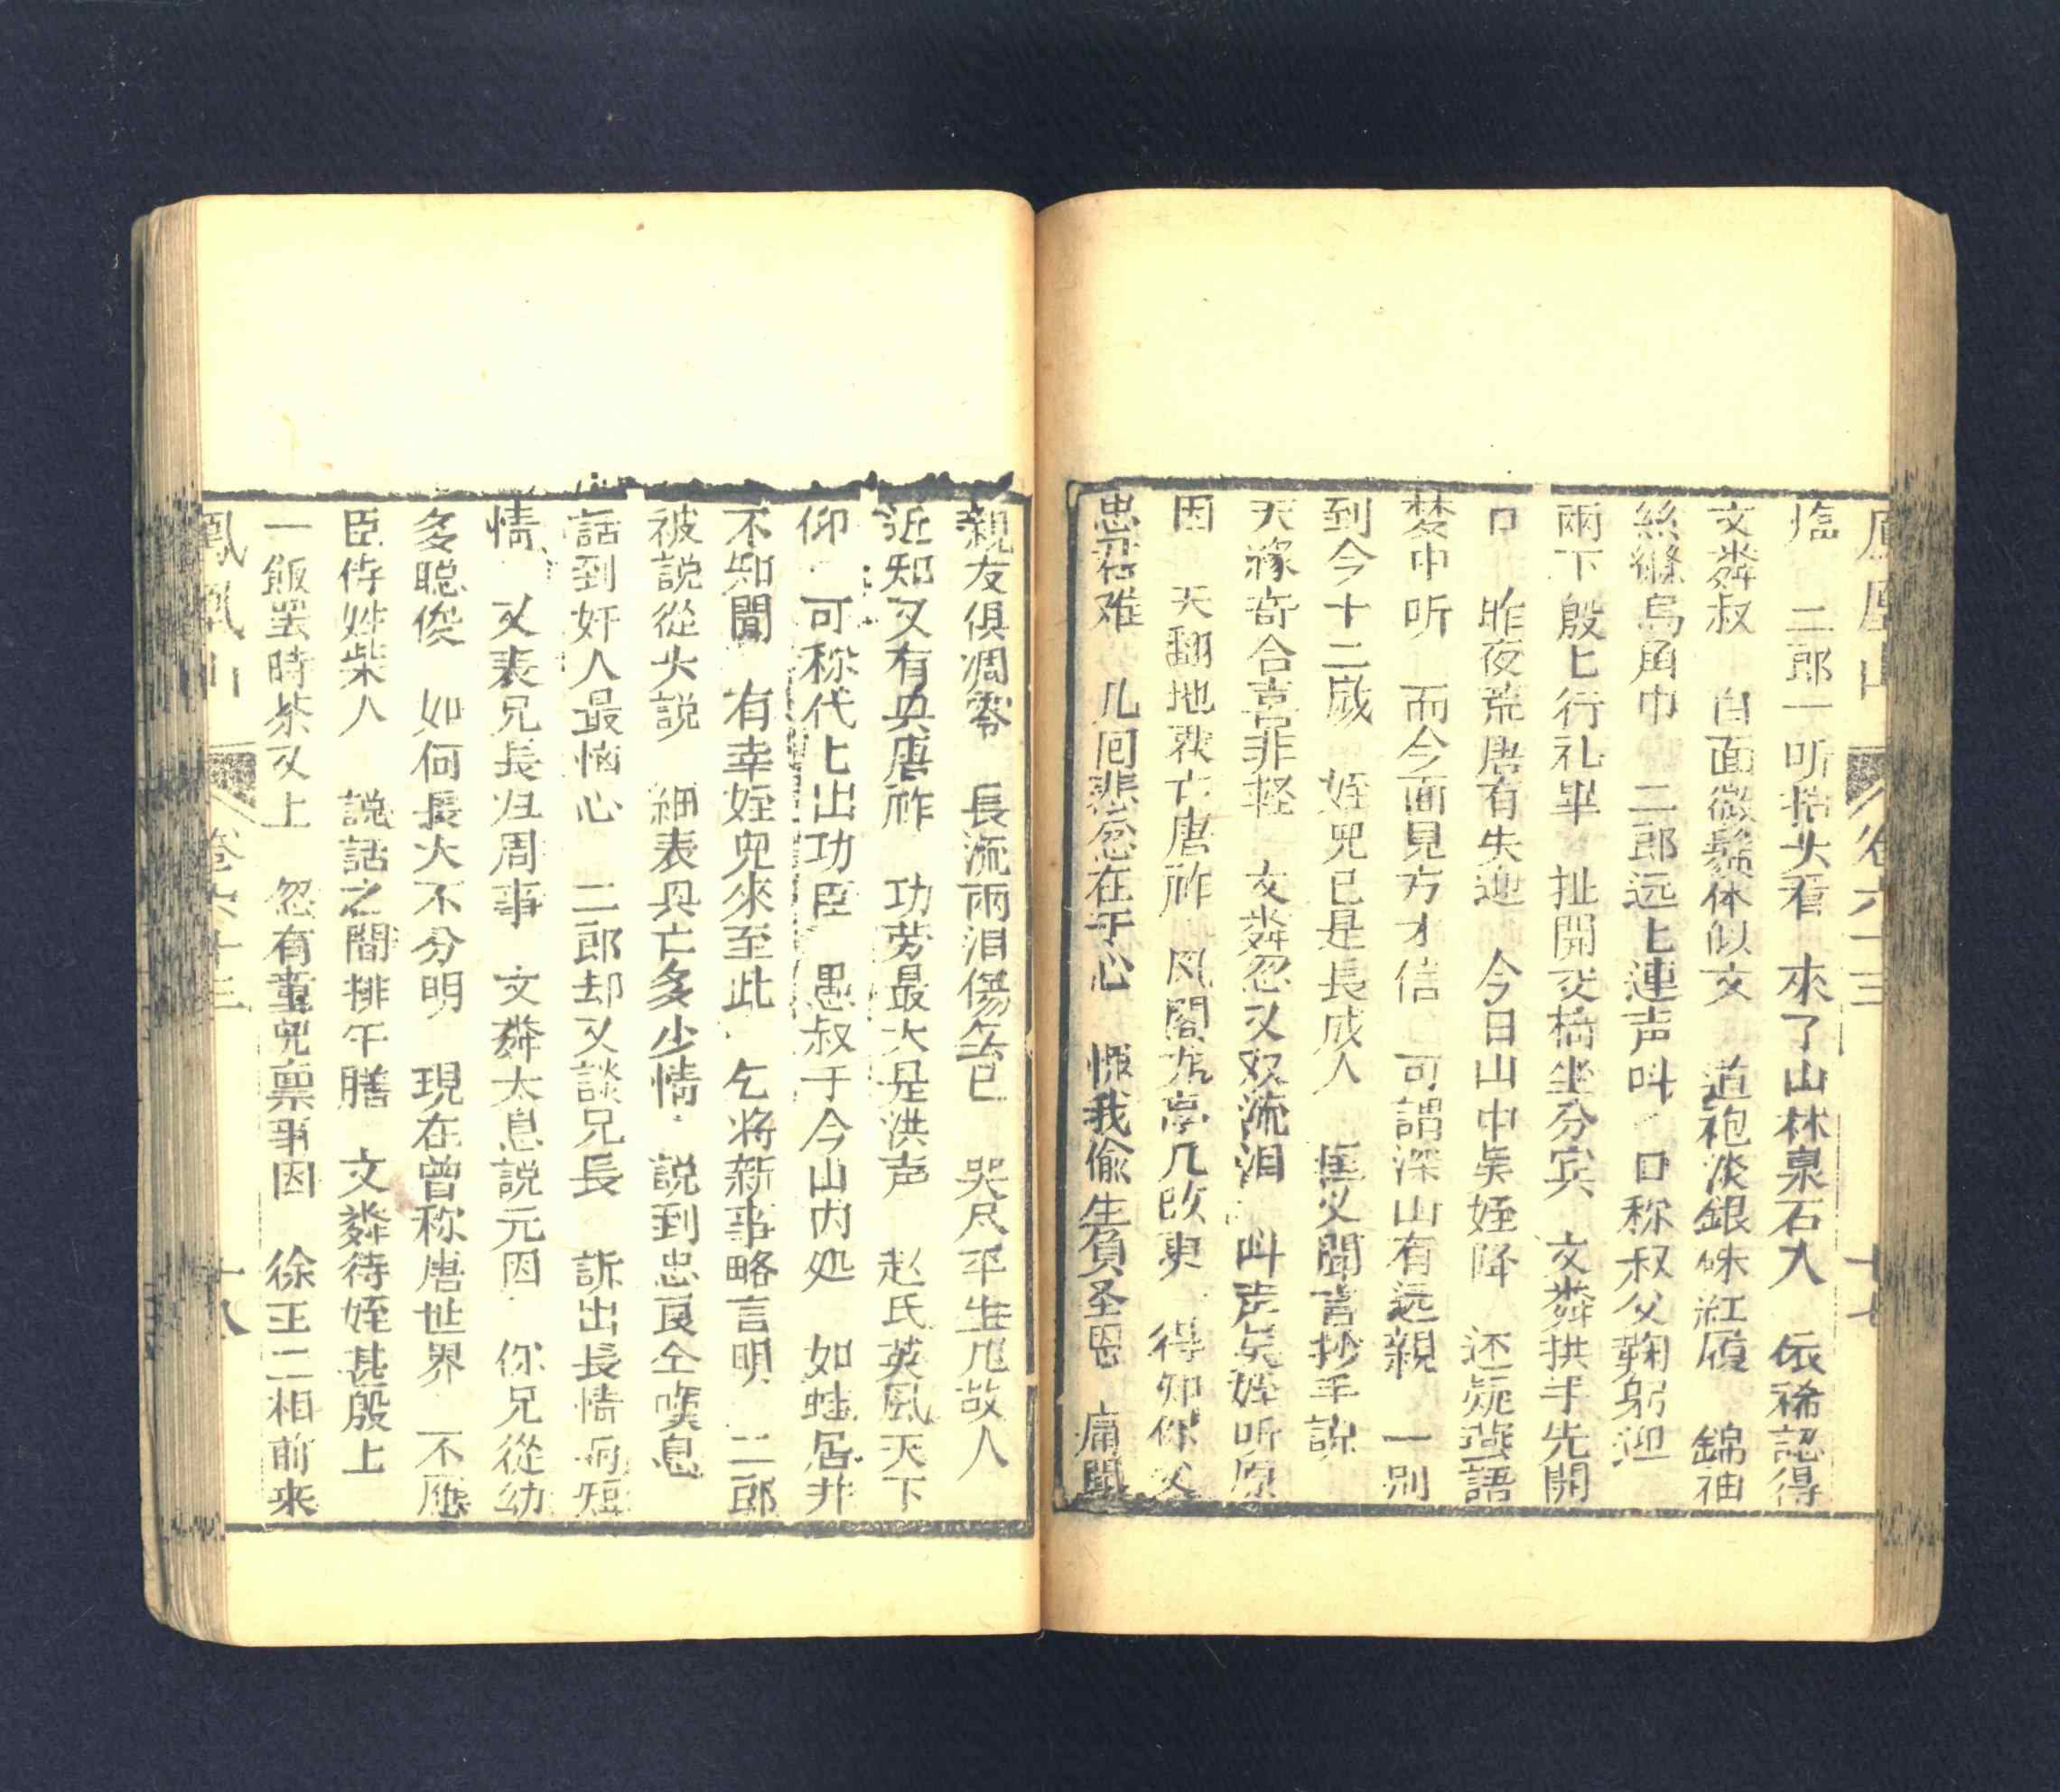 鳳凰山 卷六十三 十七
臨 二郎一听抬头看 來了山林泉石人 依稀認得
文粦叔 白面微鬚体似文 道袍淡銀硃紅履 錦袖
絲縧烏角巾 二郎远上連声叫 口称叔父鞠躬迎
兩下殷匕行礼畢 扯開交椅坐分宾 文粦拱手先開
口 昨夜荒唐有失迎 今日山中矣姪降 还疑燕語
梦中听 而今面見方才信 可謂深山有远親 一别
到今十二歲 姪兒已是長成人 匡义聞言抄手說
天緣奇合喜非軽 文粦忽又双流泪 叫声矣姪听原
因 天翻地覆亡唐祚 风閣龙亭几改更 得知你父
思君难 几囘悲忿在于心 恨我偷生負圣恩 痛聞
親友俱凋零 長流兩泪傷無已 哭尽平生几故人
近知又有兴唐祚 功劳最大是洪声 赵氏英風天下
仰 可称代匕出功臣 愚叔于今山内处 如蛙居井
不知聞 有幸姪兒來至此 乞将新事略言明 二郎
被説從头説 細表兴亡多少情 説到忠良仝嘆息
話到奸人最恼心 二郎却又談兄長 訴出長情兩短
情 又表兄長归周事 文粦太息説元因 你兄從幼
多聪俊 如何長大不分明 現在曾称唐世界 不應
臣侍姓柴人 説話之間排午膳 文粦待姪甚殷上
一飯罢時茶又上 忽有童兒禀事因 徐王二相前来
鳳凰山 卷六十三 十八